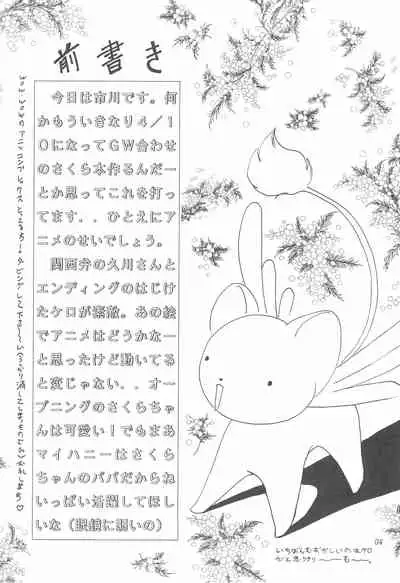 前書き
今日は市川です。何
かもういきなり4/1
0になってGW合わせ
のさくら本作るんだー
とか思ってこれを打っ
てます．．ひとえにア
ニメのせいでしょう。
関西弁の久川さんと
エンディングのはじけ
たケロが素敵。あの絵
でアニメはどうかなー
と思ったけど動いてる
と変じゃない．．オー
プニングのさくらちゃ
んは可愛い！でもまあ
マイハニーはさくら
ちゃんのパパだからね
いっぱい活躍してほし
いな（眼鏡に弱いの）
いちばんむずかしいのはケロ
かと思うけり
ーーもー。
04